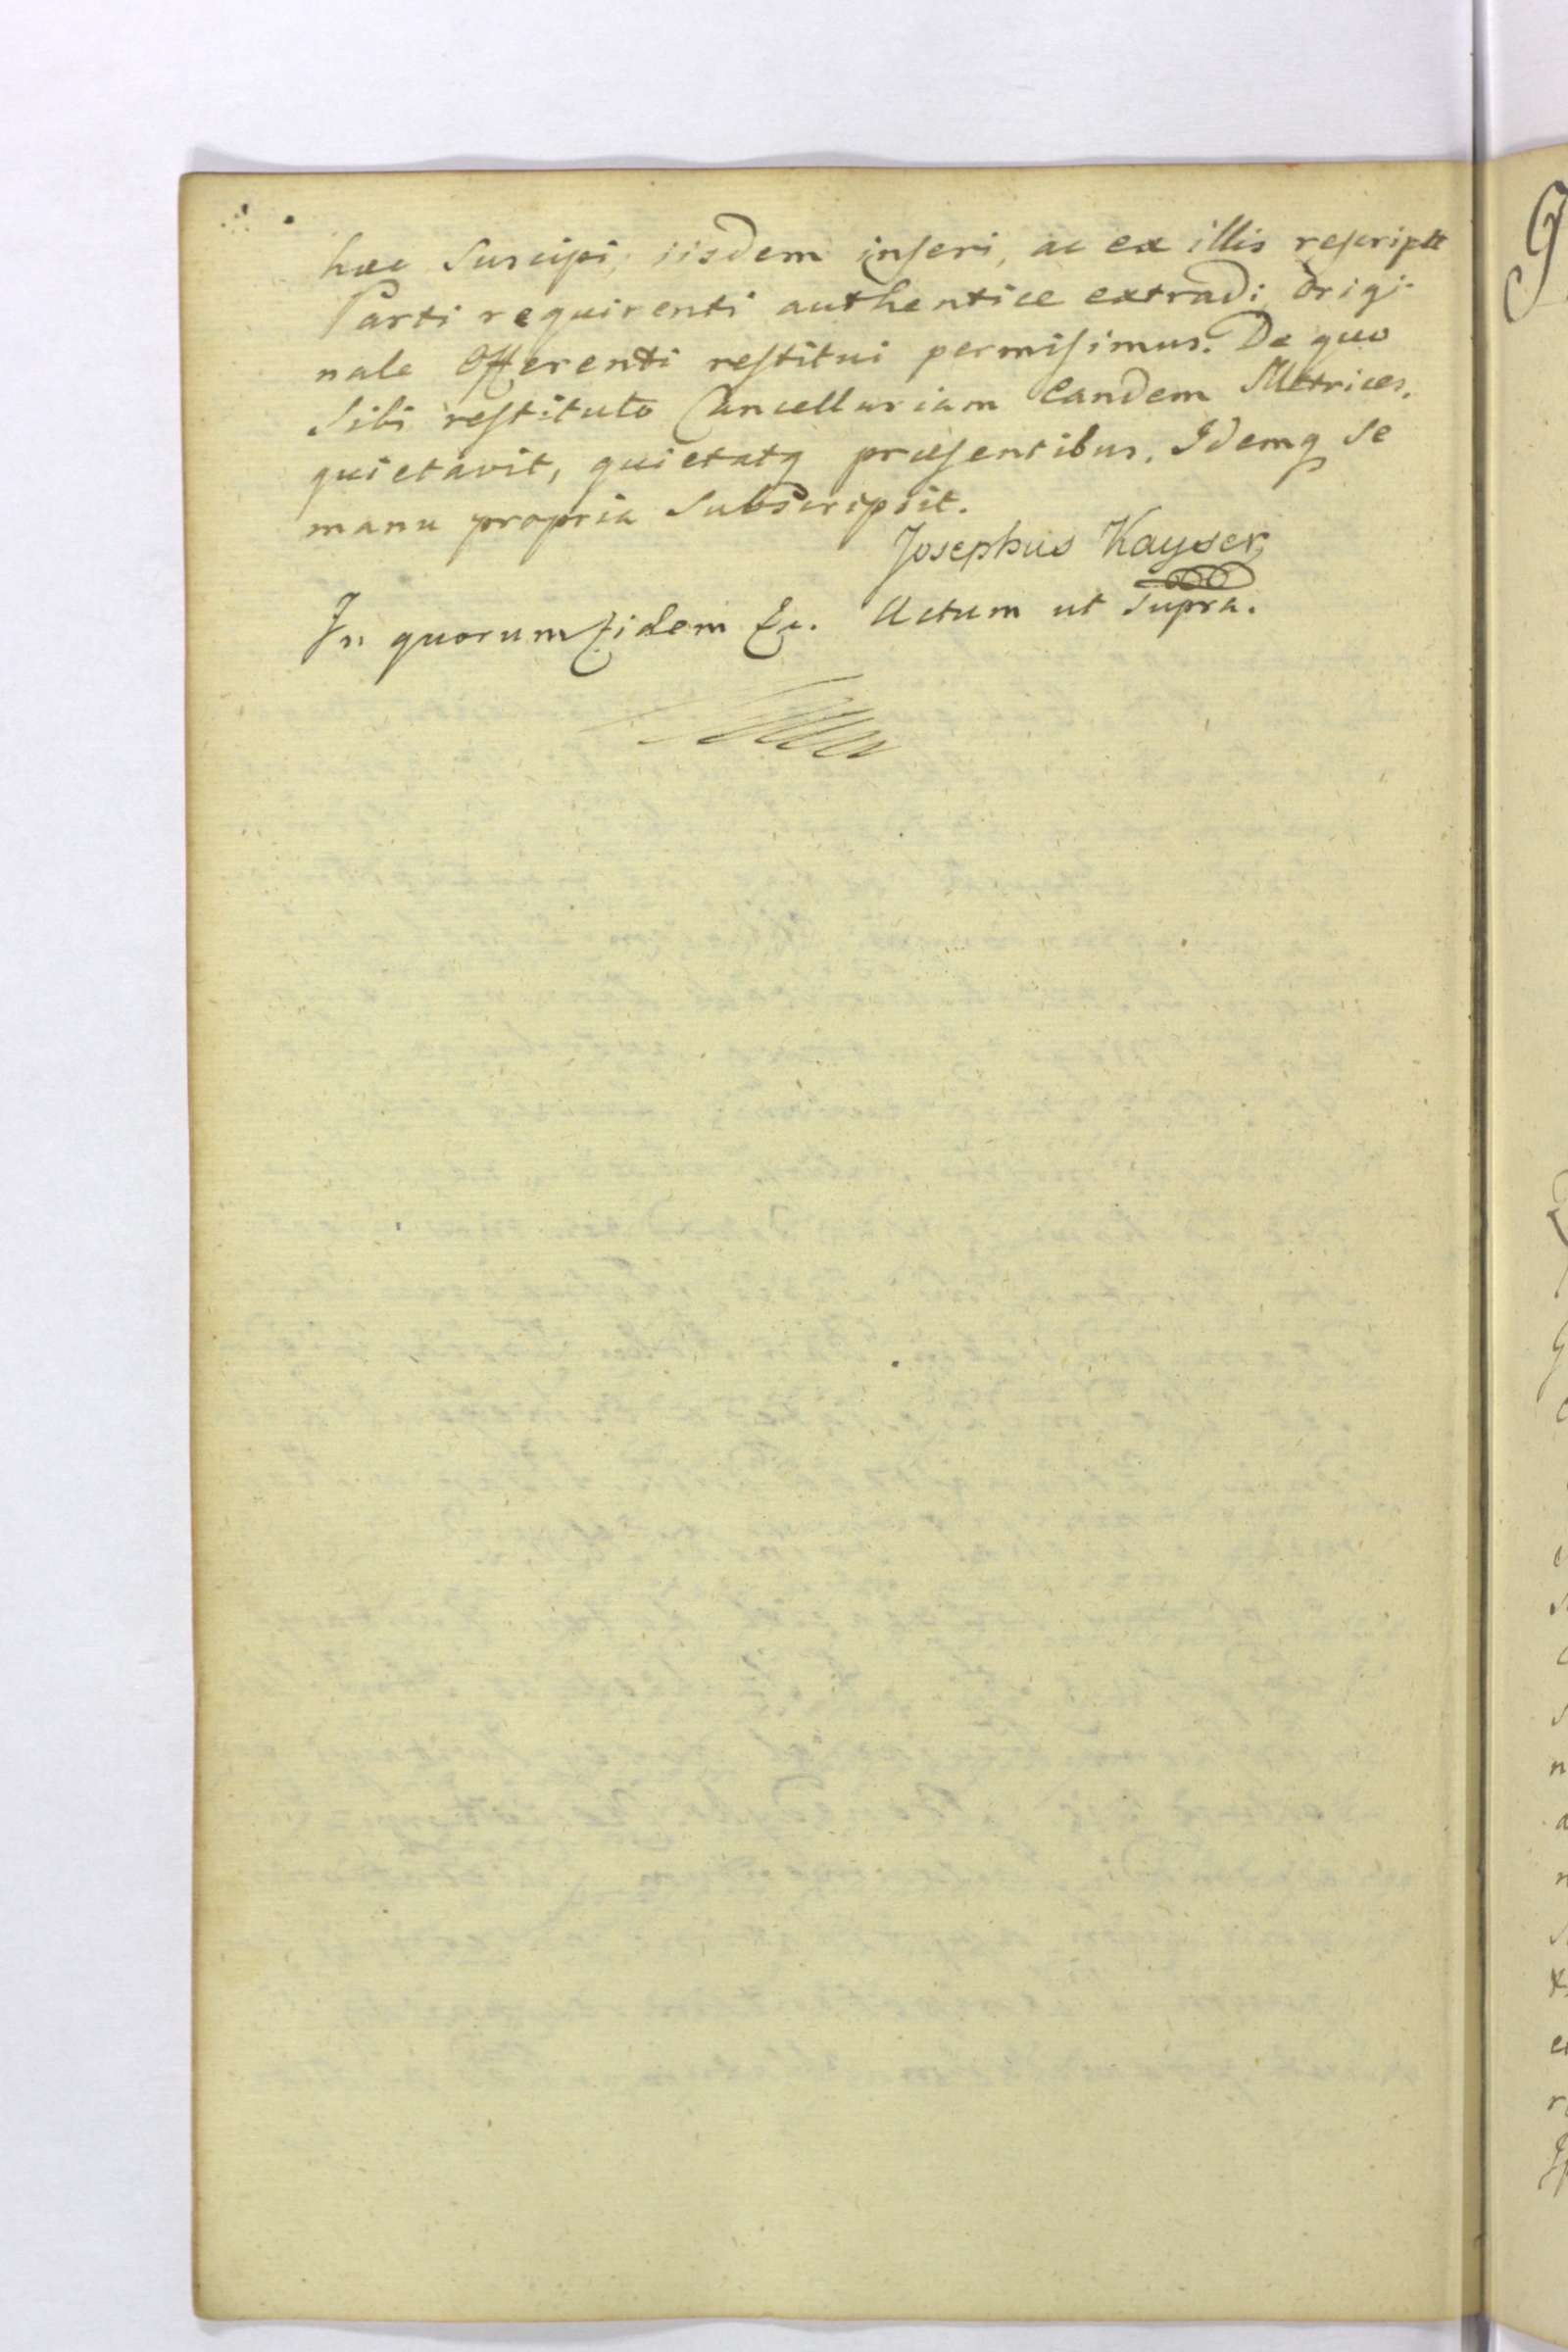 hæc suscipi, iisdem inseri, ac ex illis rescriptt
Parti requirenti authentice extradi, Origi-
nale Offerenti restitui permisimus. De quo
sibi restituto Cancellariam eandem Metrices.
quietavit, quietatq præsentibus. Idemq se
manu propria subscripsit.
Josephus Kayser
In quorum fidem &c. Actum ut supra.